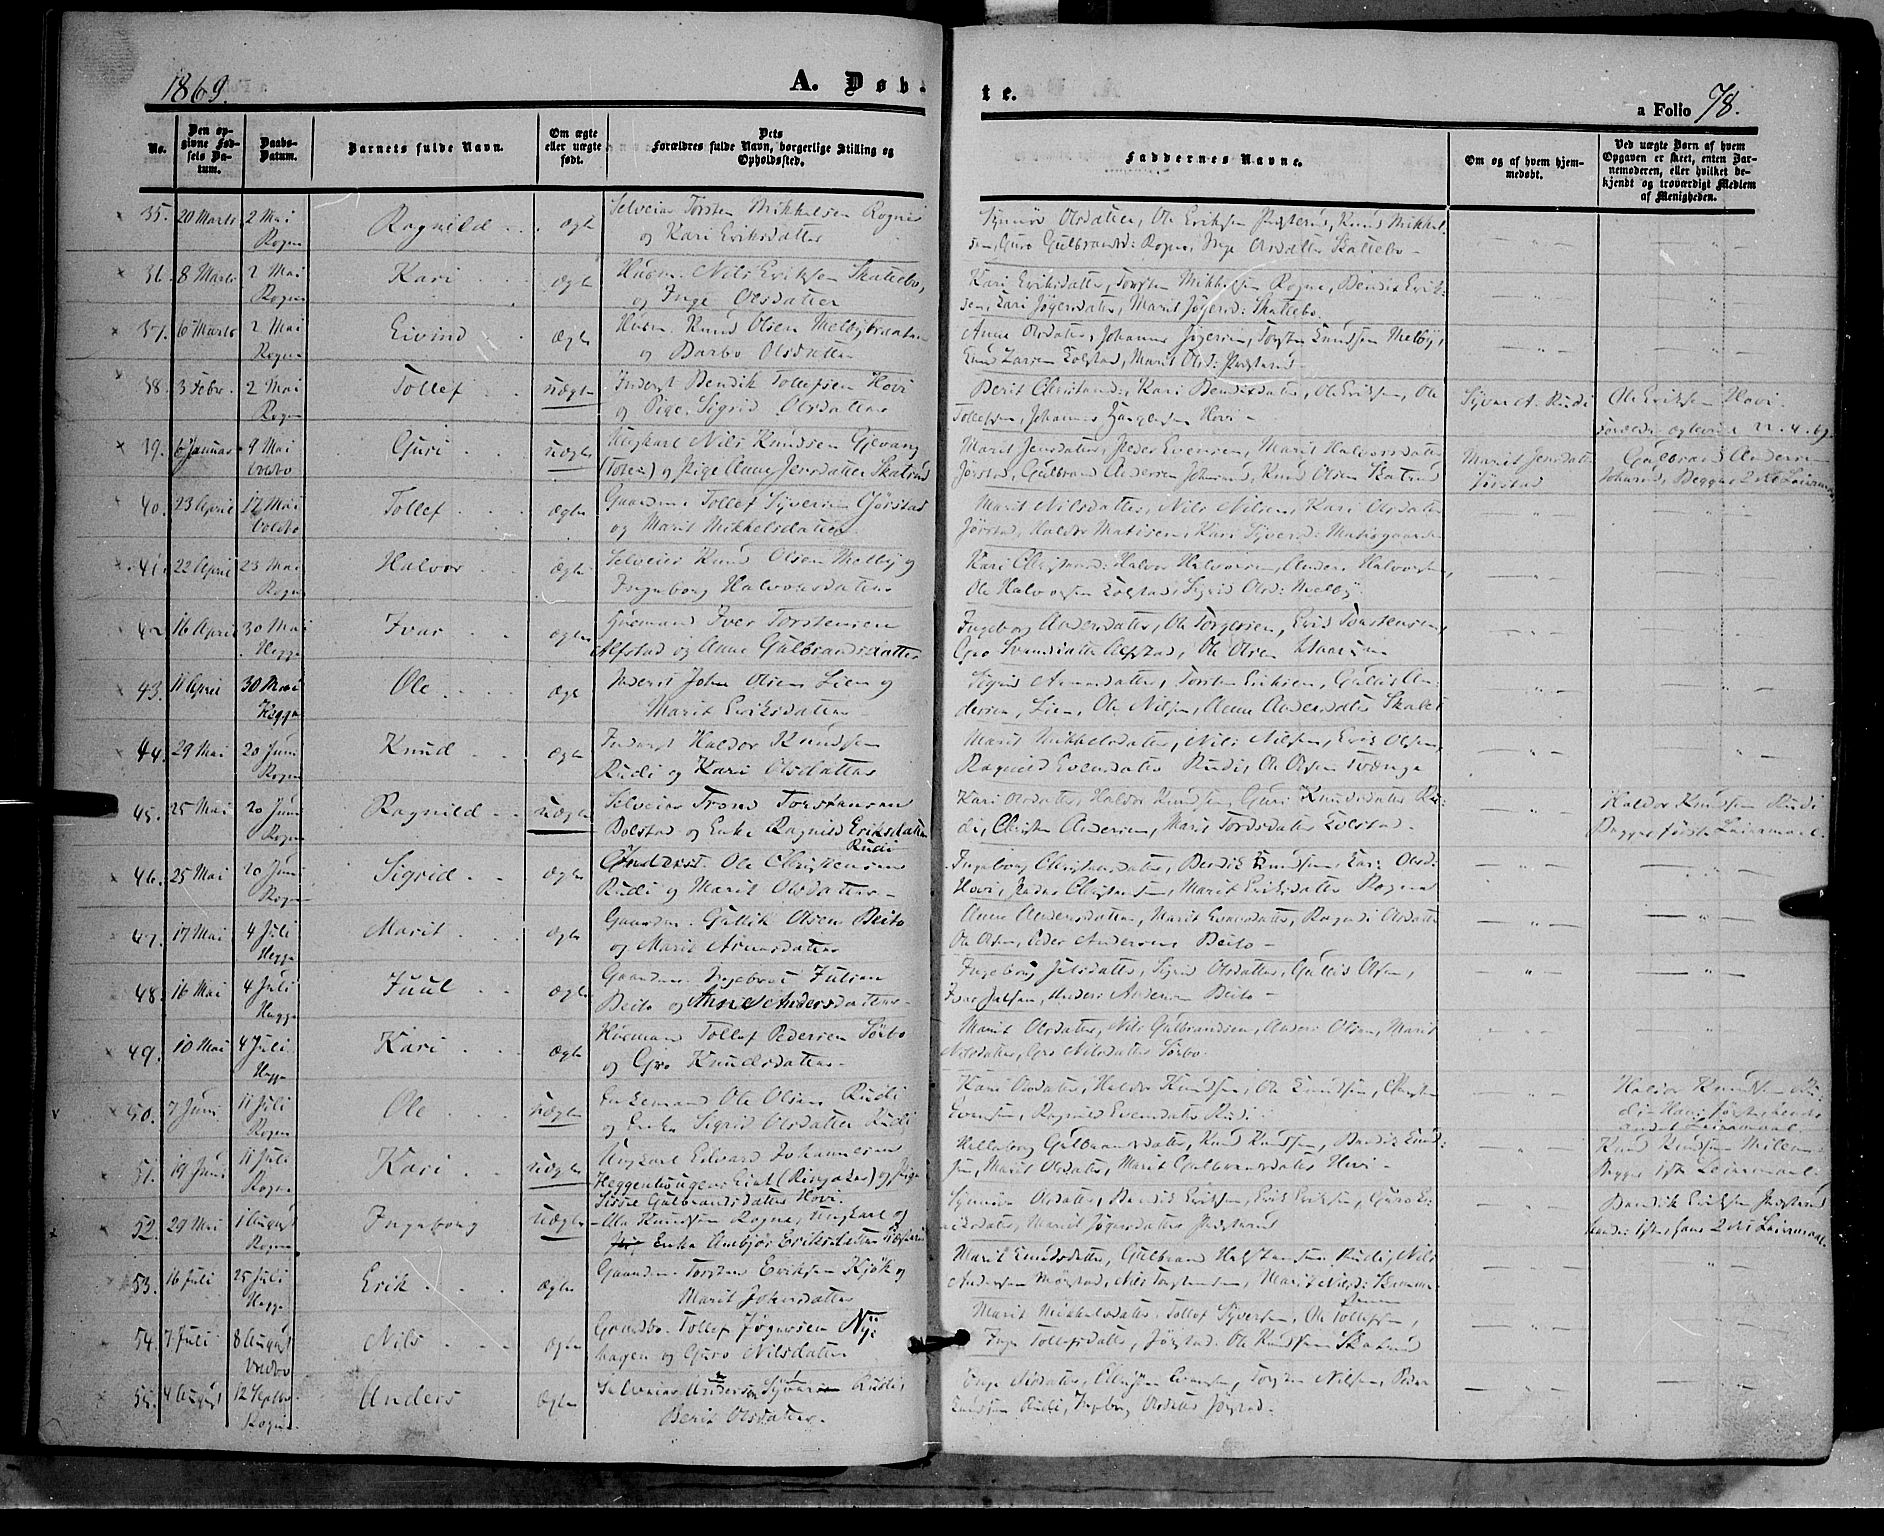 1869.
A. Døbte.
a Folio 78.
No.
Den opgivne Fødsels Datum.
Daabs-Datum.
Barnets fulde Navn.
Om ægte eller uægte født.
Dets Forældres fulde Navn, borgerlige Stilling og Opholdssted.
Faddernes Navne.
Om og af hvem hjemmedøbt.
Ved uægte Børn af hvem Opgaven er skeet, enten Barnemoderen, eller hvilket bekjendt og troværdigt Medlem af Menigheden.
35. 20 Marts 2 Mai Rogne Ragnild ægte Selveier Torsten Mikkelsen Rogne
og Kari Eriksdatter
Synnøv Olsdatter, Ole Eriksen Knud Mikkel-
sen, Guro Gulbrandsd: Rogne, Inge Olsdatter Skattebo
36. 8 Marts 2 Mai Rogne Kari ægte Husm. Nils Eriksen Skattebo,
og Inge Olsdatter
Kari Eriksdatter, Torsten Mikkelsen Rogne, Bendik Erik-
sen, Kari Jøgersdatter, Marit Jøgersd: Skattebo.
37. 6 Marts 2 Mai Rogne Eivind ægte Husm. Knud Olsen Melbybraaten
og Barbo Olsdatter
Anne Olsdatter, Johannes Torsten Knudsen Melby,
Knud Larsen Kolstad, Marit Olsd:
38. 3 Febr. 2 Mai Rogne Tollef uægte Inderst Bendik Tollefsen Hovi
og Pige Sigrid Olsdatter
Berit Christiansd: Kari Bendiksdatter, Ole Eriksen, Ole
Tollefsen, Johannes Hovi
Syver A. Rudi
Ole Eriksen Hovi
22.4.69.
39. 6 Januar 9 Mai Volbo Guri uægte Ungkarl Nils Knudsen Gjevang
(Toten) og Pige Anne Jensdatter Skatrud
Marit Jensdatter, Peder Evensen, Marit Halvorsdatter
Jørstad, Gulbrand Andersen Knud Olsen Skatrud
Marit Jensdatter
Jørstad
Gulbrand Andersen
Begges 2det Leiermaal
40. 23 April 17 Mai Volbo Tollef ægte Gaardm. Tollef Syversen Gjørstad
og Marit Mikkelsdatter
Marit Nilsdatter, Nils Nilsen, Kari Olsdatter
Jørstad, Haldor Matisen, Kari Syversd: Matisgaarden
41. 22 April 23 Mai Rogne Halvor ægte Selveier Knud Olsen Melby og
Ingeborg Halvorsdatter
Kari Christensd: Halvor Halvorsen, Anders Halvorsen,
Ole Halvorsen Kolstad, Sigrid Olsd: Melby
42. 16 April 30 Mai Hegge Ivar ægte Husmand Iver Torstensen
Alfstad og Anne Gulbrandsdatter
Ingeborg Andersdatter, Ole Torgersen, Erik Torstensen,
Gro Alfstad, Ole Olsen
43. 11 April 30 Mai Hegge Ole ægte Inderst John Olsen Lien og
Marit Eriksdatter
Sigrid Arnesdatter, Torsten Eriksen, Gullik An-
dersen, Lien, Ole Nilsen, Anne Andersdatter
44. 29 Mai 20 Juni Rogne Knud ægte Inderst Haldor Knudsen
Rudi og Kari Olsdatter
Marit Mikkelsdatter, Nils Nilsen, Erik Olsen,
Ragnild Evensdatter Rudi, Ole Olsen
45. 25 Mai 20 Juni Rogne Ragnild uægte Selveier Trond Torstensen
Bolstad og Enke Ragnild Eriksdatter
Rudi
Kari Olsdatter, Haldor Knudsen, Guri Knudsdatter Ru-
di, Christen Andersen, Marit Tordsdatter Kolstad.
Haldor Knudsen Rudi
Begges første Leiermaal.
46. 25 Mai 20 Juni Rogne Sigrid ægte Inderst Ole Christensen
Rudi og Marit Olsdatter
Ingeborg Christensdatter, Bendik Knudsen Kari Olsd:
Hovi, Peder Christensen, Marit Eriksdatter Rogne
47. 17 Mai 4 Juli Hegge Marit ægte Gaardm. Gullik Olsen Beito
og Marit Arnesdatter
Anne Andersdatter, Marit Evensdatter, Ragnild Olsdatter
Ole Olsen, Peder Andersen Beito
48. 16 Mai 4 Juli Hegge Juul ægte Gaardm. Ingebret Julsen
Beito og Anne Andersdatter
Ingeborg Julsdatter, Sigrid Olsdatter, Gullik Olsen,
Iver Julsen, Anders Andersen Beito
49. 10 Mai 4 Juli Hegge Kari ægte Husmand Tollef Pedersen Sørbo
og Gro Knudsdatter
Marit Olsdatter, Nils Gulbrandsen, Anders Olsen, Marit
Nilsdatter, Gro Nilsdatter Sørbo.
50. 7 Juni 11 Juli Rogne Ole uægte Enkemand Ole Olsen Rudi
og Enke Sigrid Olsdatter Rudi
Kari Olsdatter, Haldor Knudsen, Ole Knudsen, Christen
Evensen, Ragnild Evensdatter Rudi
Haldor Knudsen Ru-
di
andet Leiermaal
51. 19 Juni 11 Juli Rogne Kari uægte Ungkarl Edvard Johannesen
Heggenhougens Eiet (Ringsaker) og Pige
Sissel Gulbrandsdatter Hovi.
Gulbrandsdatter, Knud Knudsen, Bendik Knud-
sen, Marit Olsdatter, Marit Gulbrandsdatter Hovi
Knud Knudsen
Begges 1ste Leiermaal
52. 29 Mai 1 August Rogne Ingeborg uægte Ole Knudsen Rogne, Ungkarl og
Enke Ambjør Eriksdatter
Synnøv Olsdatter, Bendik Eriksen, Erik Eriksen, Guro E-
riksdatter, Marit Jøgersdatter
Bendik Eriksen
hendes 1ste hans 2det Leiermaal
53. 16 Juli 25 Juli Hegge Erik ægte Gaardm. Torsten Eriksen Kjøk og
Marit Johnsdatter
Marit Knudsdatter, Gulbrand Rudi, Nils
Andersen Nils Torstensen, Marit Nilsd:
54. 7 Juli 8 August Volbo Nils ægte Gaardbr. Tollef Jøgersen Ny-
hagen og Guro Nilsdatter
Marit Mikkelsdatter, Tollef Syversen, Ole Tollefsen,
Inge Tollefsdatter, Jørstad. Ole Knudsen Skatrud
55. 4 August 12 Septbr. Rogne Anders ægte Selveier Anders Syversen Rudi,
Berit Olsdatter.
Inge Torsten Nilsen, Peder
Knudsen Rudi, Ingeborg Olsdatter Jørstad.